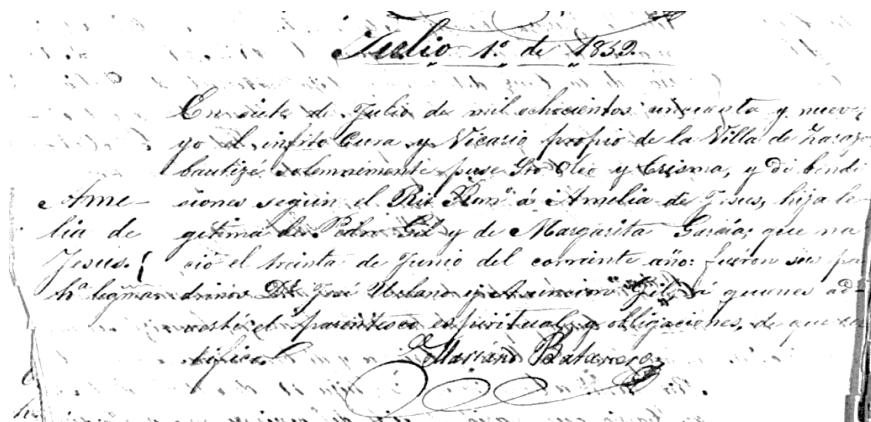 Julio 1º de 1859.
En siete de Julio de mil ochocientos cincuenta y nueve;
yo el infrito Cura y Vicario propio de la Villa de Zarazo
bautizé solemnemente puse Sto Oleo y Crisma, y di bendi
Ame- ciones segun el Rit. Rom.º á Amelia de Jesus, hija le
lia de gitima de Pedro Gil y de Margarita Garcia; que na
Jesus. ció el treinta de Junio del corriente año: fueron sus pa
hª legma drinos Dn José Urbano y Asuncion Gil, á quienes ad
vertí el parentesco espiritual y obligaciones, de que cer
tifico.
Mariano Batanero